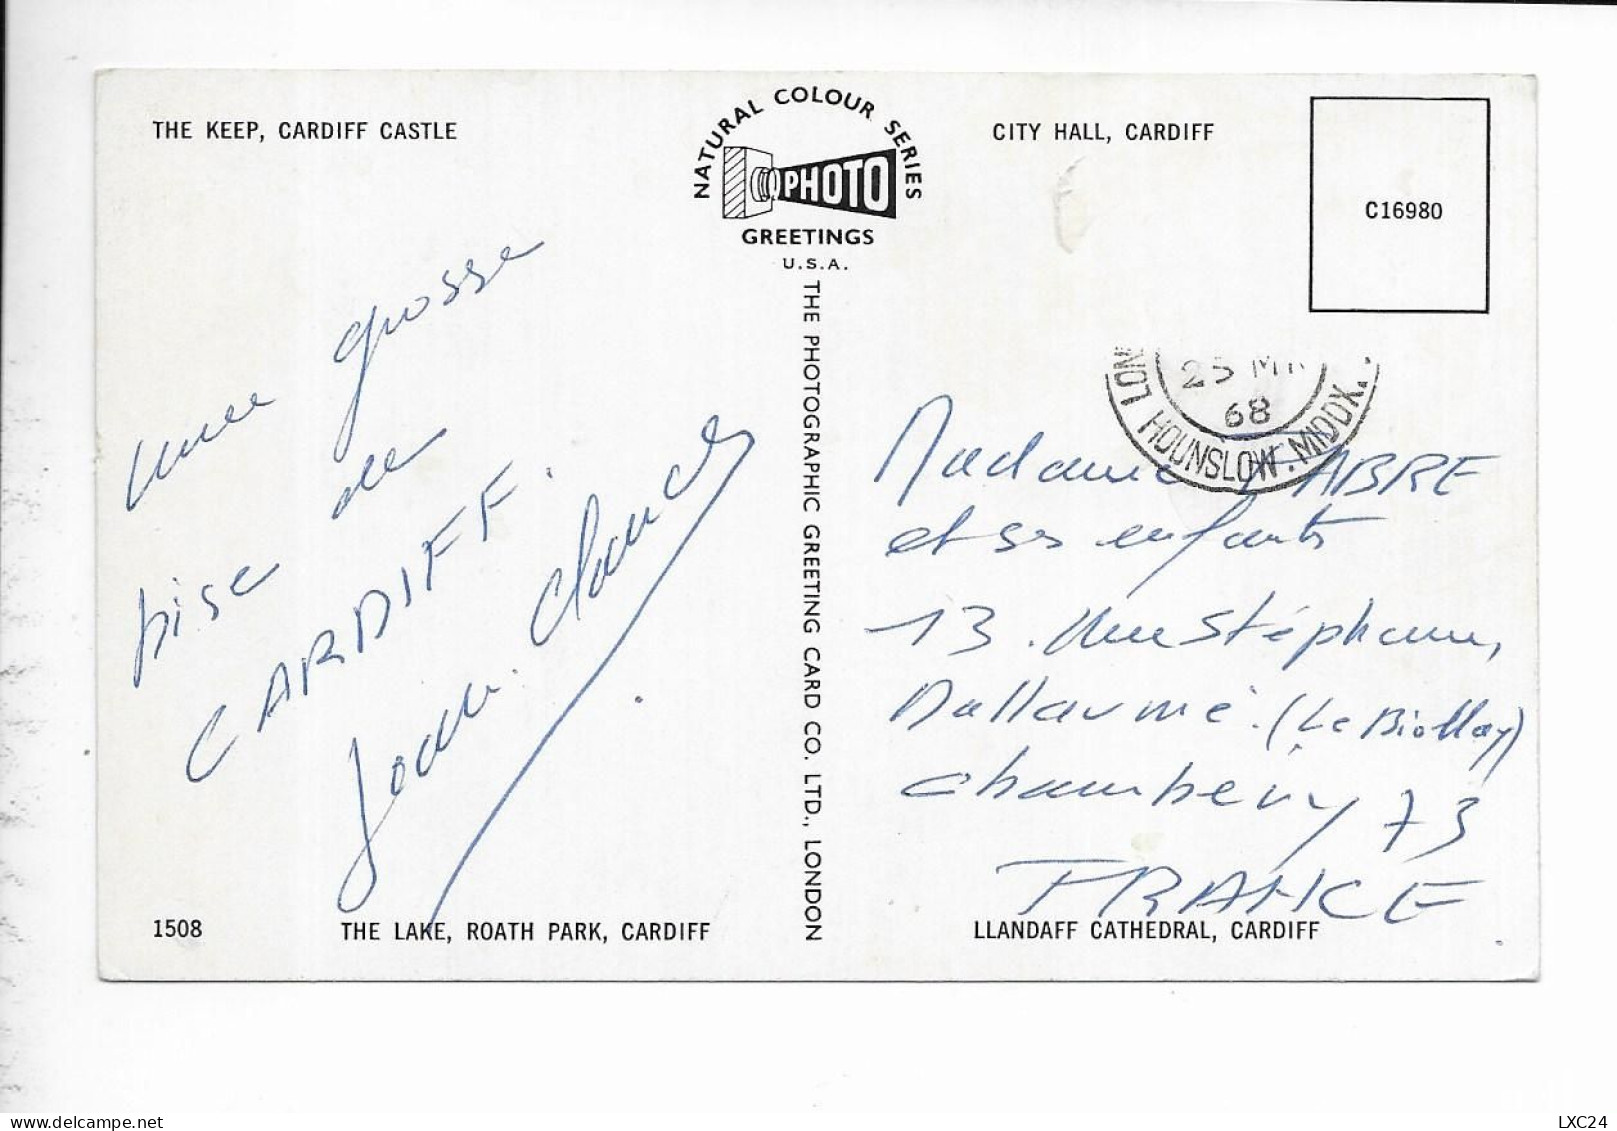 THE KEEP, CARDIFF CASTLE
NATURAL COLOUR SERIES
PHOTO
GREETINGS
U.S.A.
CITY HALL, CARDIFF
C16980
une grosse
bise de
CARDIFF.
Jean. Claude
THE PHOTOGRAPHIC GREETING CARD CO. LTD., LONDON
25 M
68
HOUNSLOW. MIDDX.
Madame FABRE
et ses enfants
13. Rue Stéphane,
Mallarmé. (Le Biollay)
Chambéry 73
FRANCE
1508
THE LAKE, ROATH PARK, CARDIFF
LLANDAFF CATHEDRAL, CARDIFF
delcampe.net
LXC24